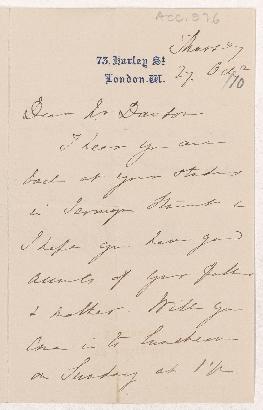 ACC. 376
73, Harley St.
London. W.
Thursday
27 Oct
/70
Dear Mr Dawson
I hear you are
back at your studio
in Street &
I hope you have good
accounts of your father
& mother. Will you
come in to luncheon
on Sunday at